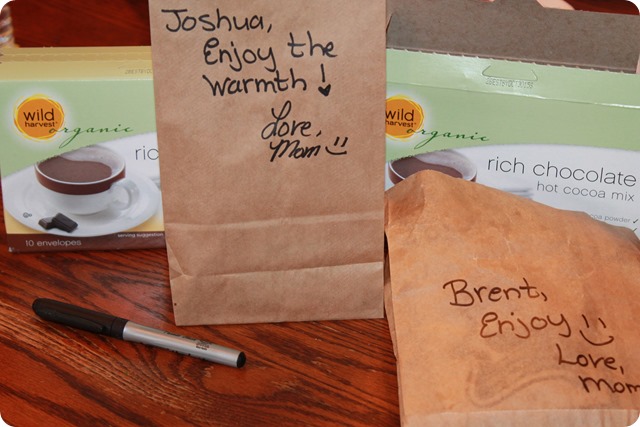 Joshua,
Enjoy the
warmth!
Love,
Mom
wild
harvest
organic
ric
10 envelopes
serving suggestion
wild
harvest
organic
rich chocolate
hot cocoa mix
cocoa powder
Brent,
Enjoy
Love,
Mom